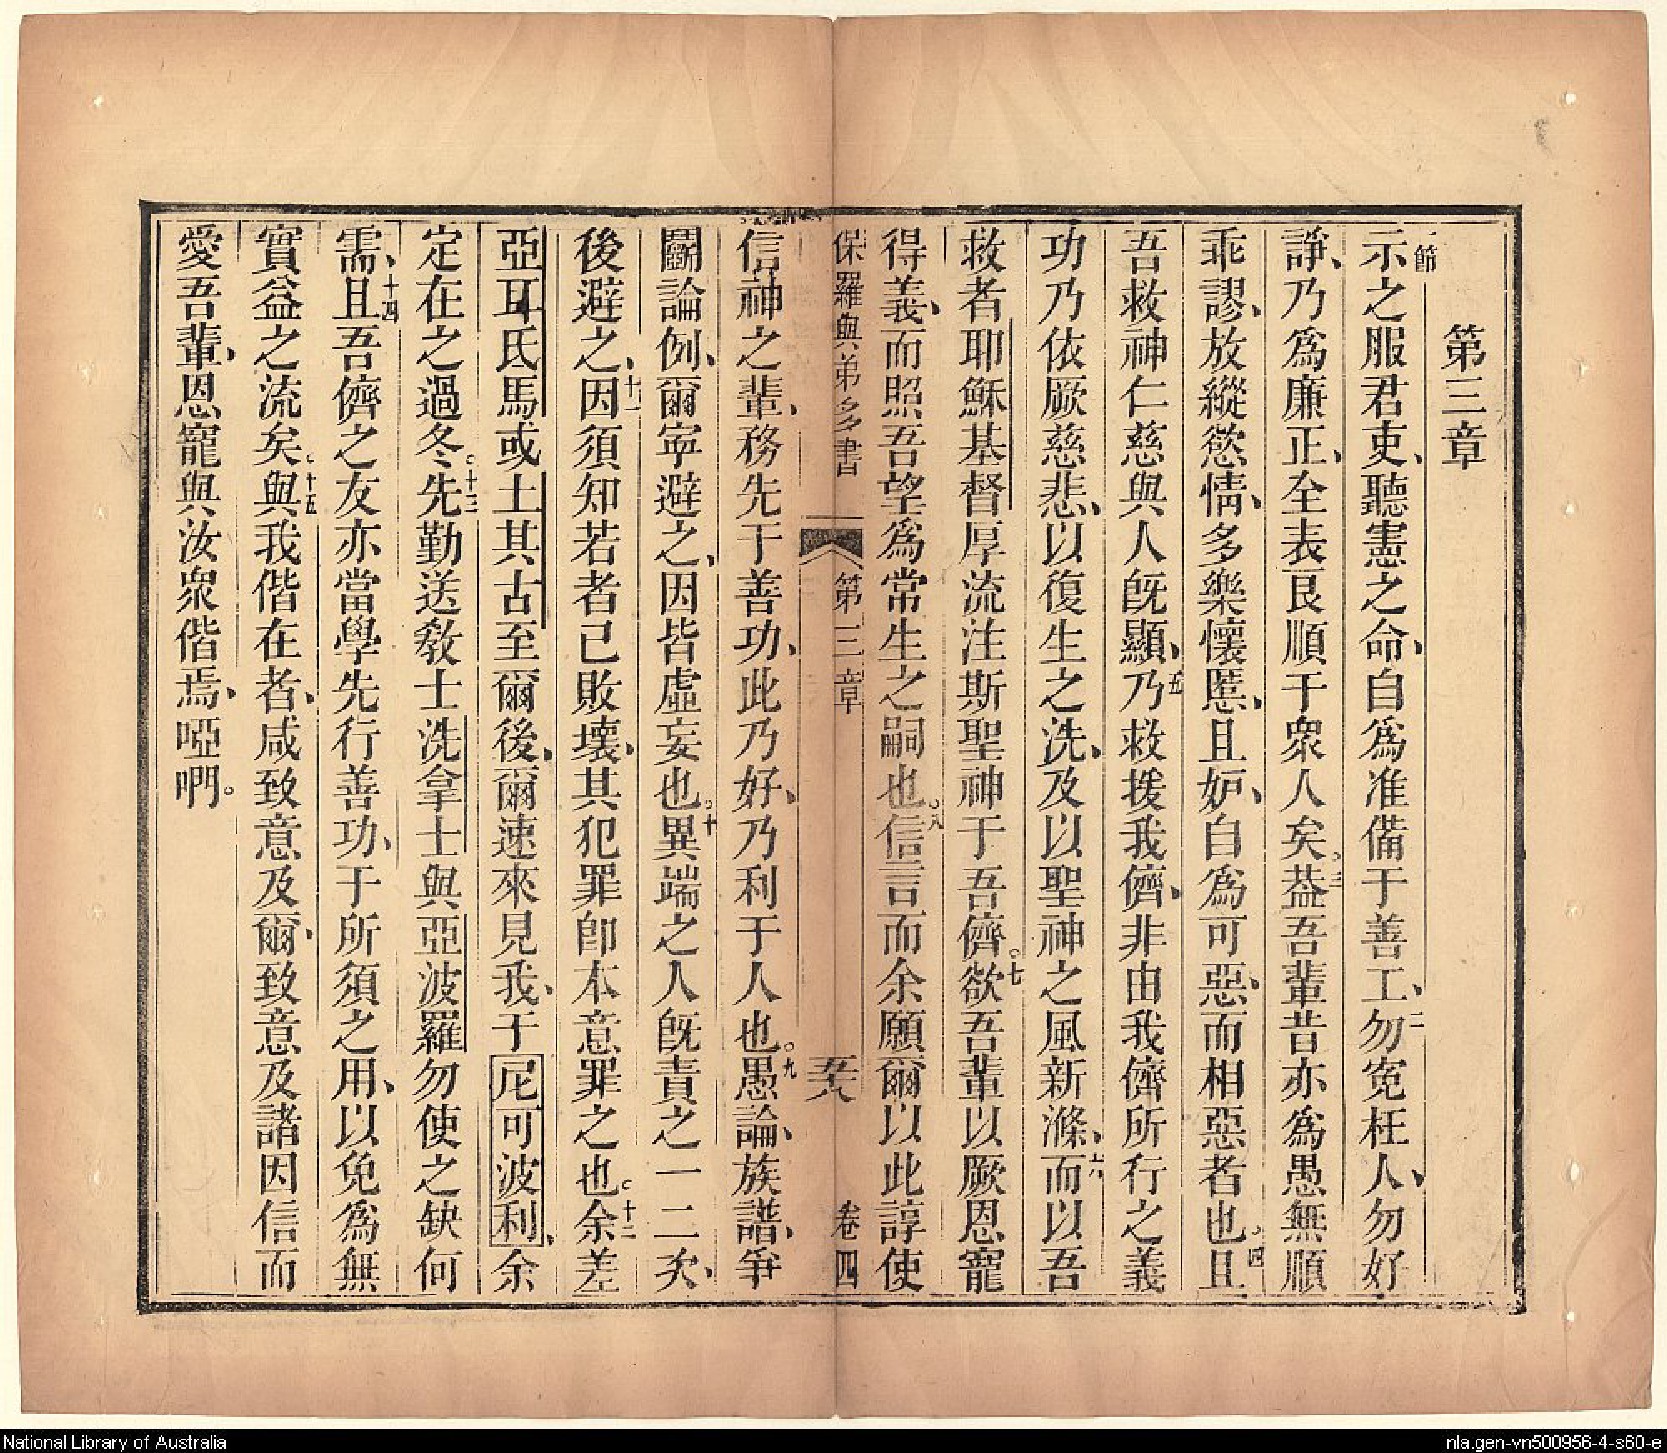 第三章
一節
示之服君吏、聽憲之命、自爲准備于善工、二勿寃枉人、勿好
諍、乃爲廉正、全表良順于衆人矣。三葢吾輩昔亦爲愚無順
乖謬、放縱慾情、多樂懷慝、且妒、自爲可惡、而相惡者也。四且
吾救神仁慈與人旣顯、五乃救援我儕、非由我儕所行之義
功乃依厥慈悲、以復生之洗、及以聖神之風新滌、六而以吾
救者耶穌基督厚流注斯聖神于吾儕。七欲吾輩以厥恩寵
得義、而照吾望爲常生之嗣也。八信言而余願爾以此諄使
保羅與弟多書 第三章 五十八 卷四
信神之輩、務先于善功、此乃好、乃利于人也。九愚論、族譜、爭
鬭論例、爾寧避之、因皆虛妄也。十異端之人旣責之一二次、
後避之、十一因須知若者已敗壞、其犯罪卽本意罪之也。十二余差
亞耳氐馬或土其古至爾後、爾速來見我、于尼可波利、余
定在之過冬。十三先勤送敎士洗拿士與亞波羅勿使之缺何
需、十四且吾儕之友亦當學先行善功、于所須之用、以免爲無
實益之流矣。十五與我偕在者、咸致意及爾、致意及諸因信而
愛吾輩、恩寵與汝衆偕焉、啞啊。
National Library of Australia
nla.gen-vn500956-4-s60-e